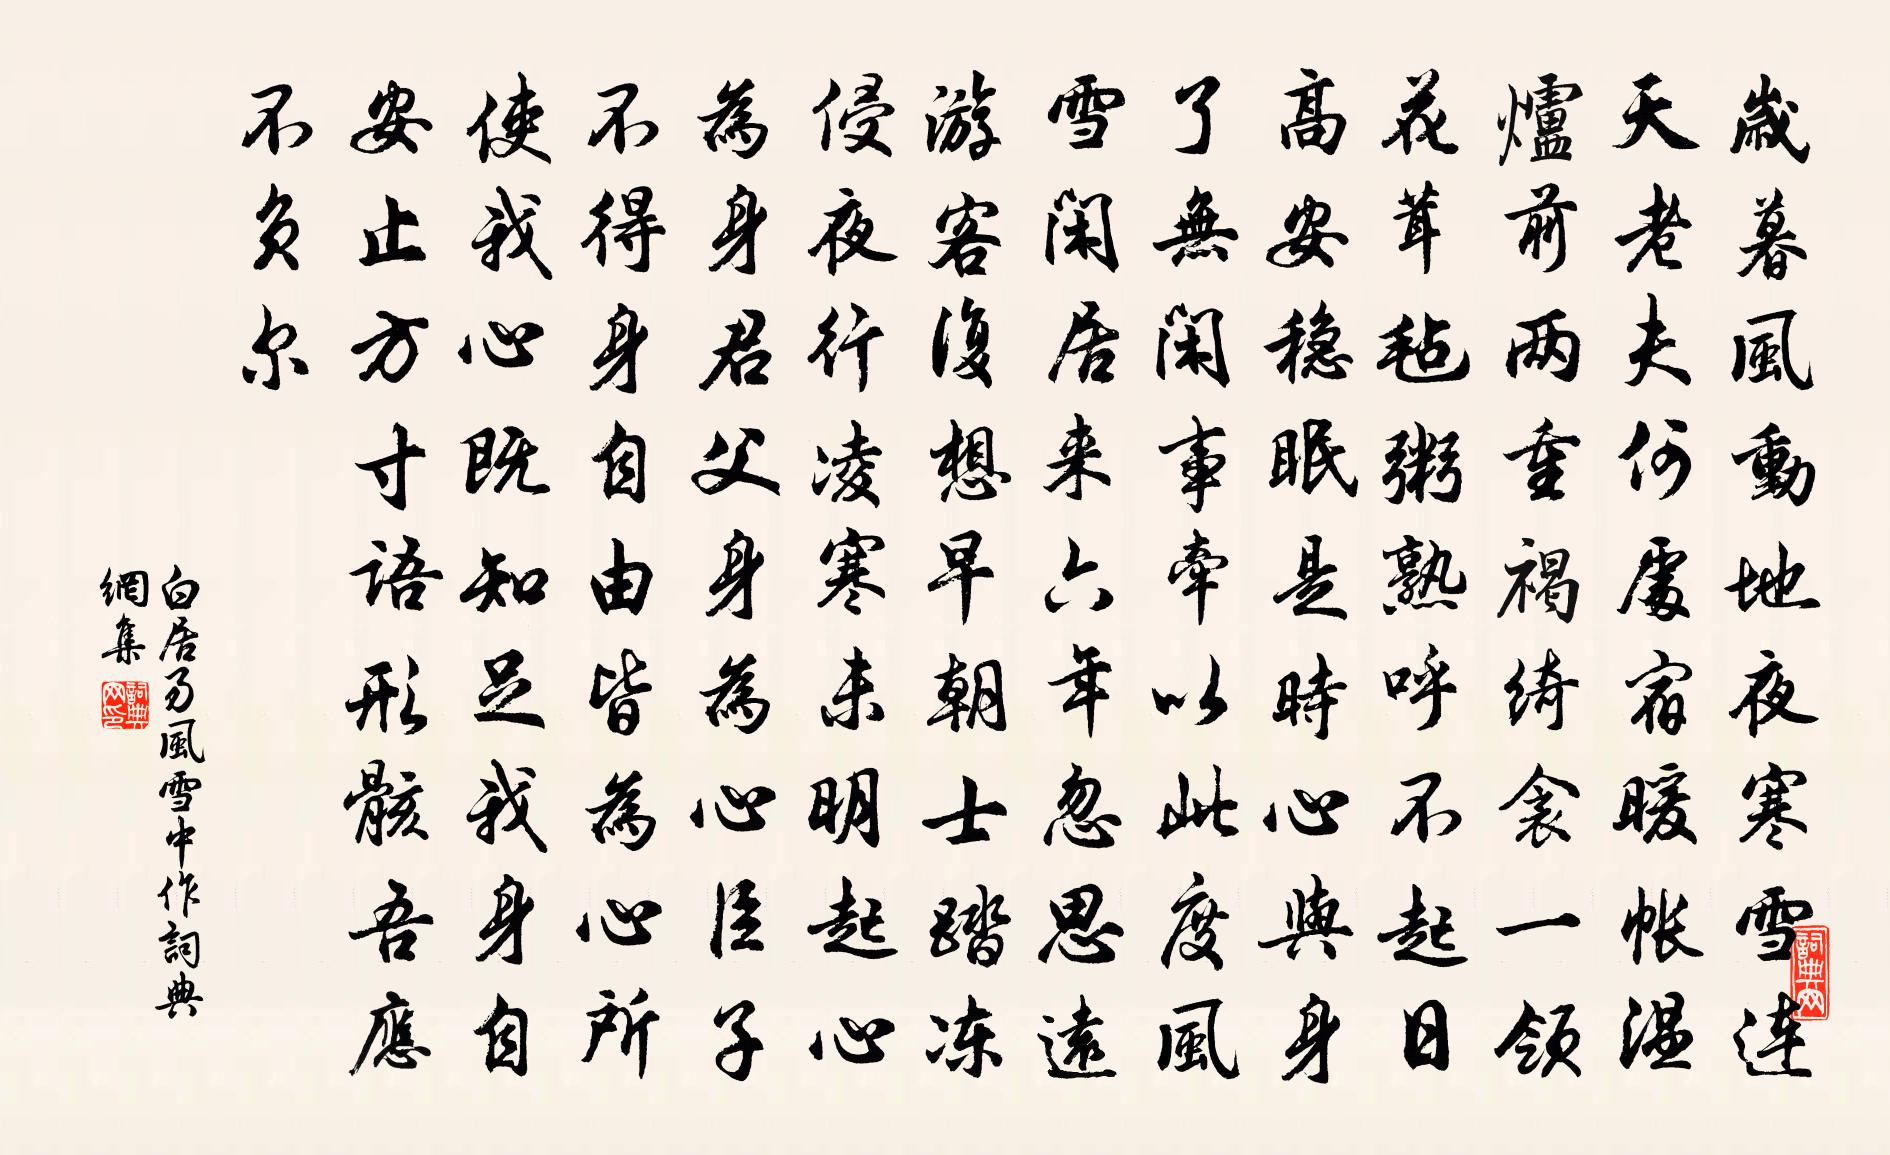 歲暮風動地夜寒雪連
天老夫何處宿暖帐温
爐前两重褐綺衾一領
花茸毡粥熟呼不起日
高安穏眠是時心與身
了無闲事牵以此度風
雪闲居来六年忽思遠
游客復想早朝士踏冻
侵夜行凌寒未明起心
為身君父身為心臣子
不得身自由皆為心所
使我心既知足我身自
安止方寸语形骸吾應
不负尔
白居易風雪中作詞典
網集
詞典网
詞典网印